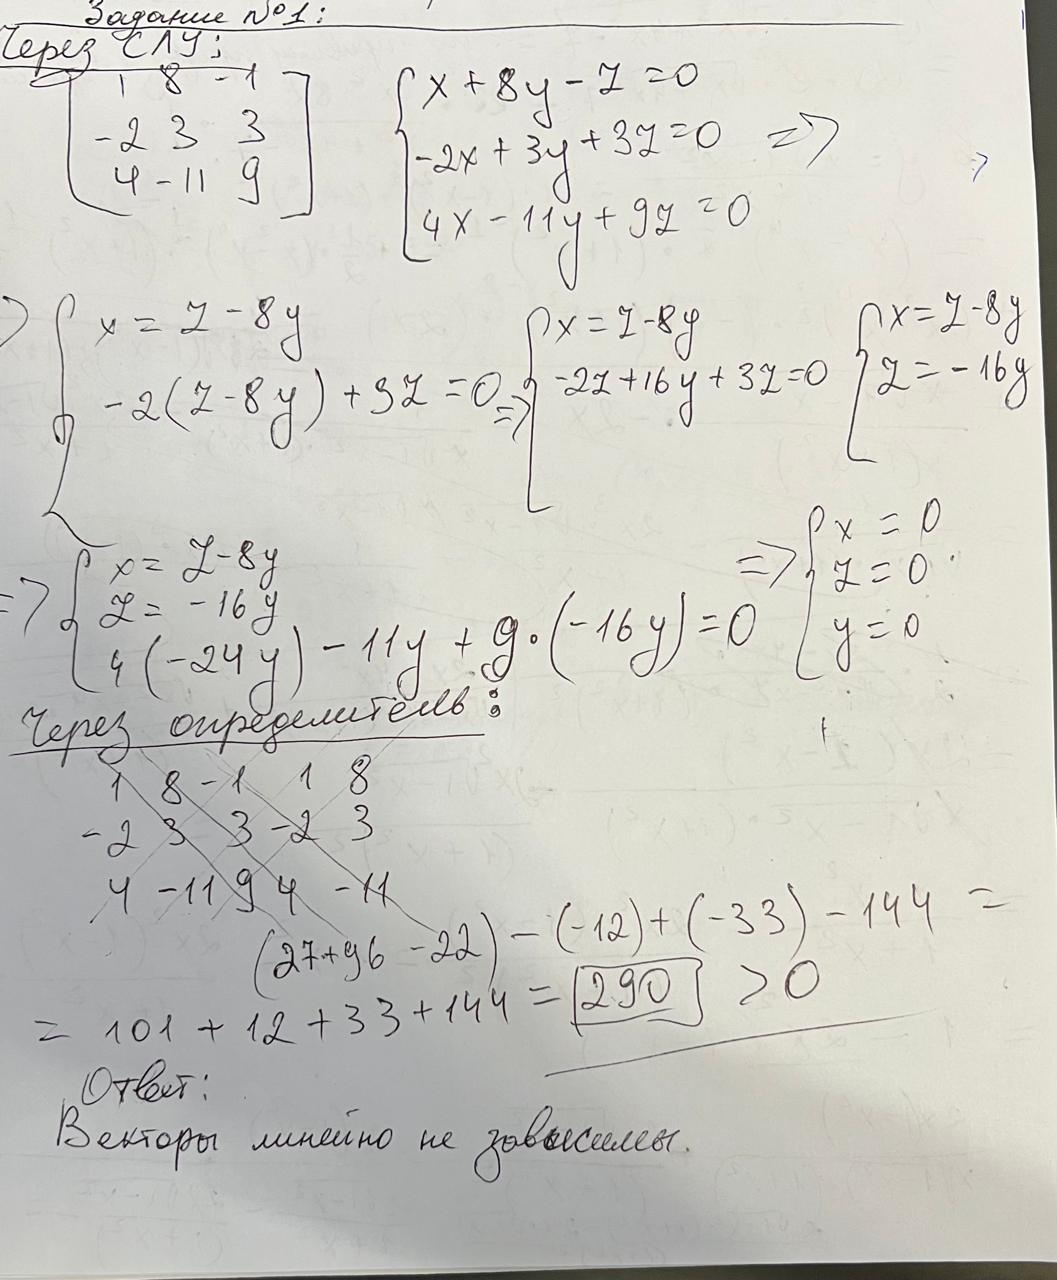 Задание №1:
Через СЛУ:
1 8 -1
-2 3 3
4 -11 9
x + 8y - z = 0
-2x + 3y + 3z = 0 =>
4x - 11y + 9z = 0
=>
x = z - 8y
-2(z - 8y) + 3z = 0 =>
x = z - 8y
-2z + 16y + 3z = 0
x = z - 8y
z = -16y
=> x = z - 8y
z = -16y
4(-24y) - 11y + 9·(-16y) = 0
=> x = 0
z = 0
y = 0
Через определитель:
1 8 -1 1 8
-2 3 3 -2 3
4 -11 9 4 -11
(27+96 -22) - (-12) + (-33) - 144 =
= 101 + 12 + 33 + 144 = 290 > 0
Ответ:
Векторы линейно не зависимы.